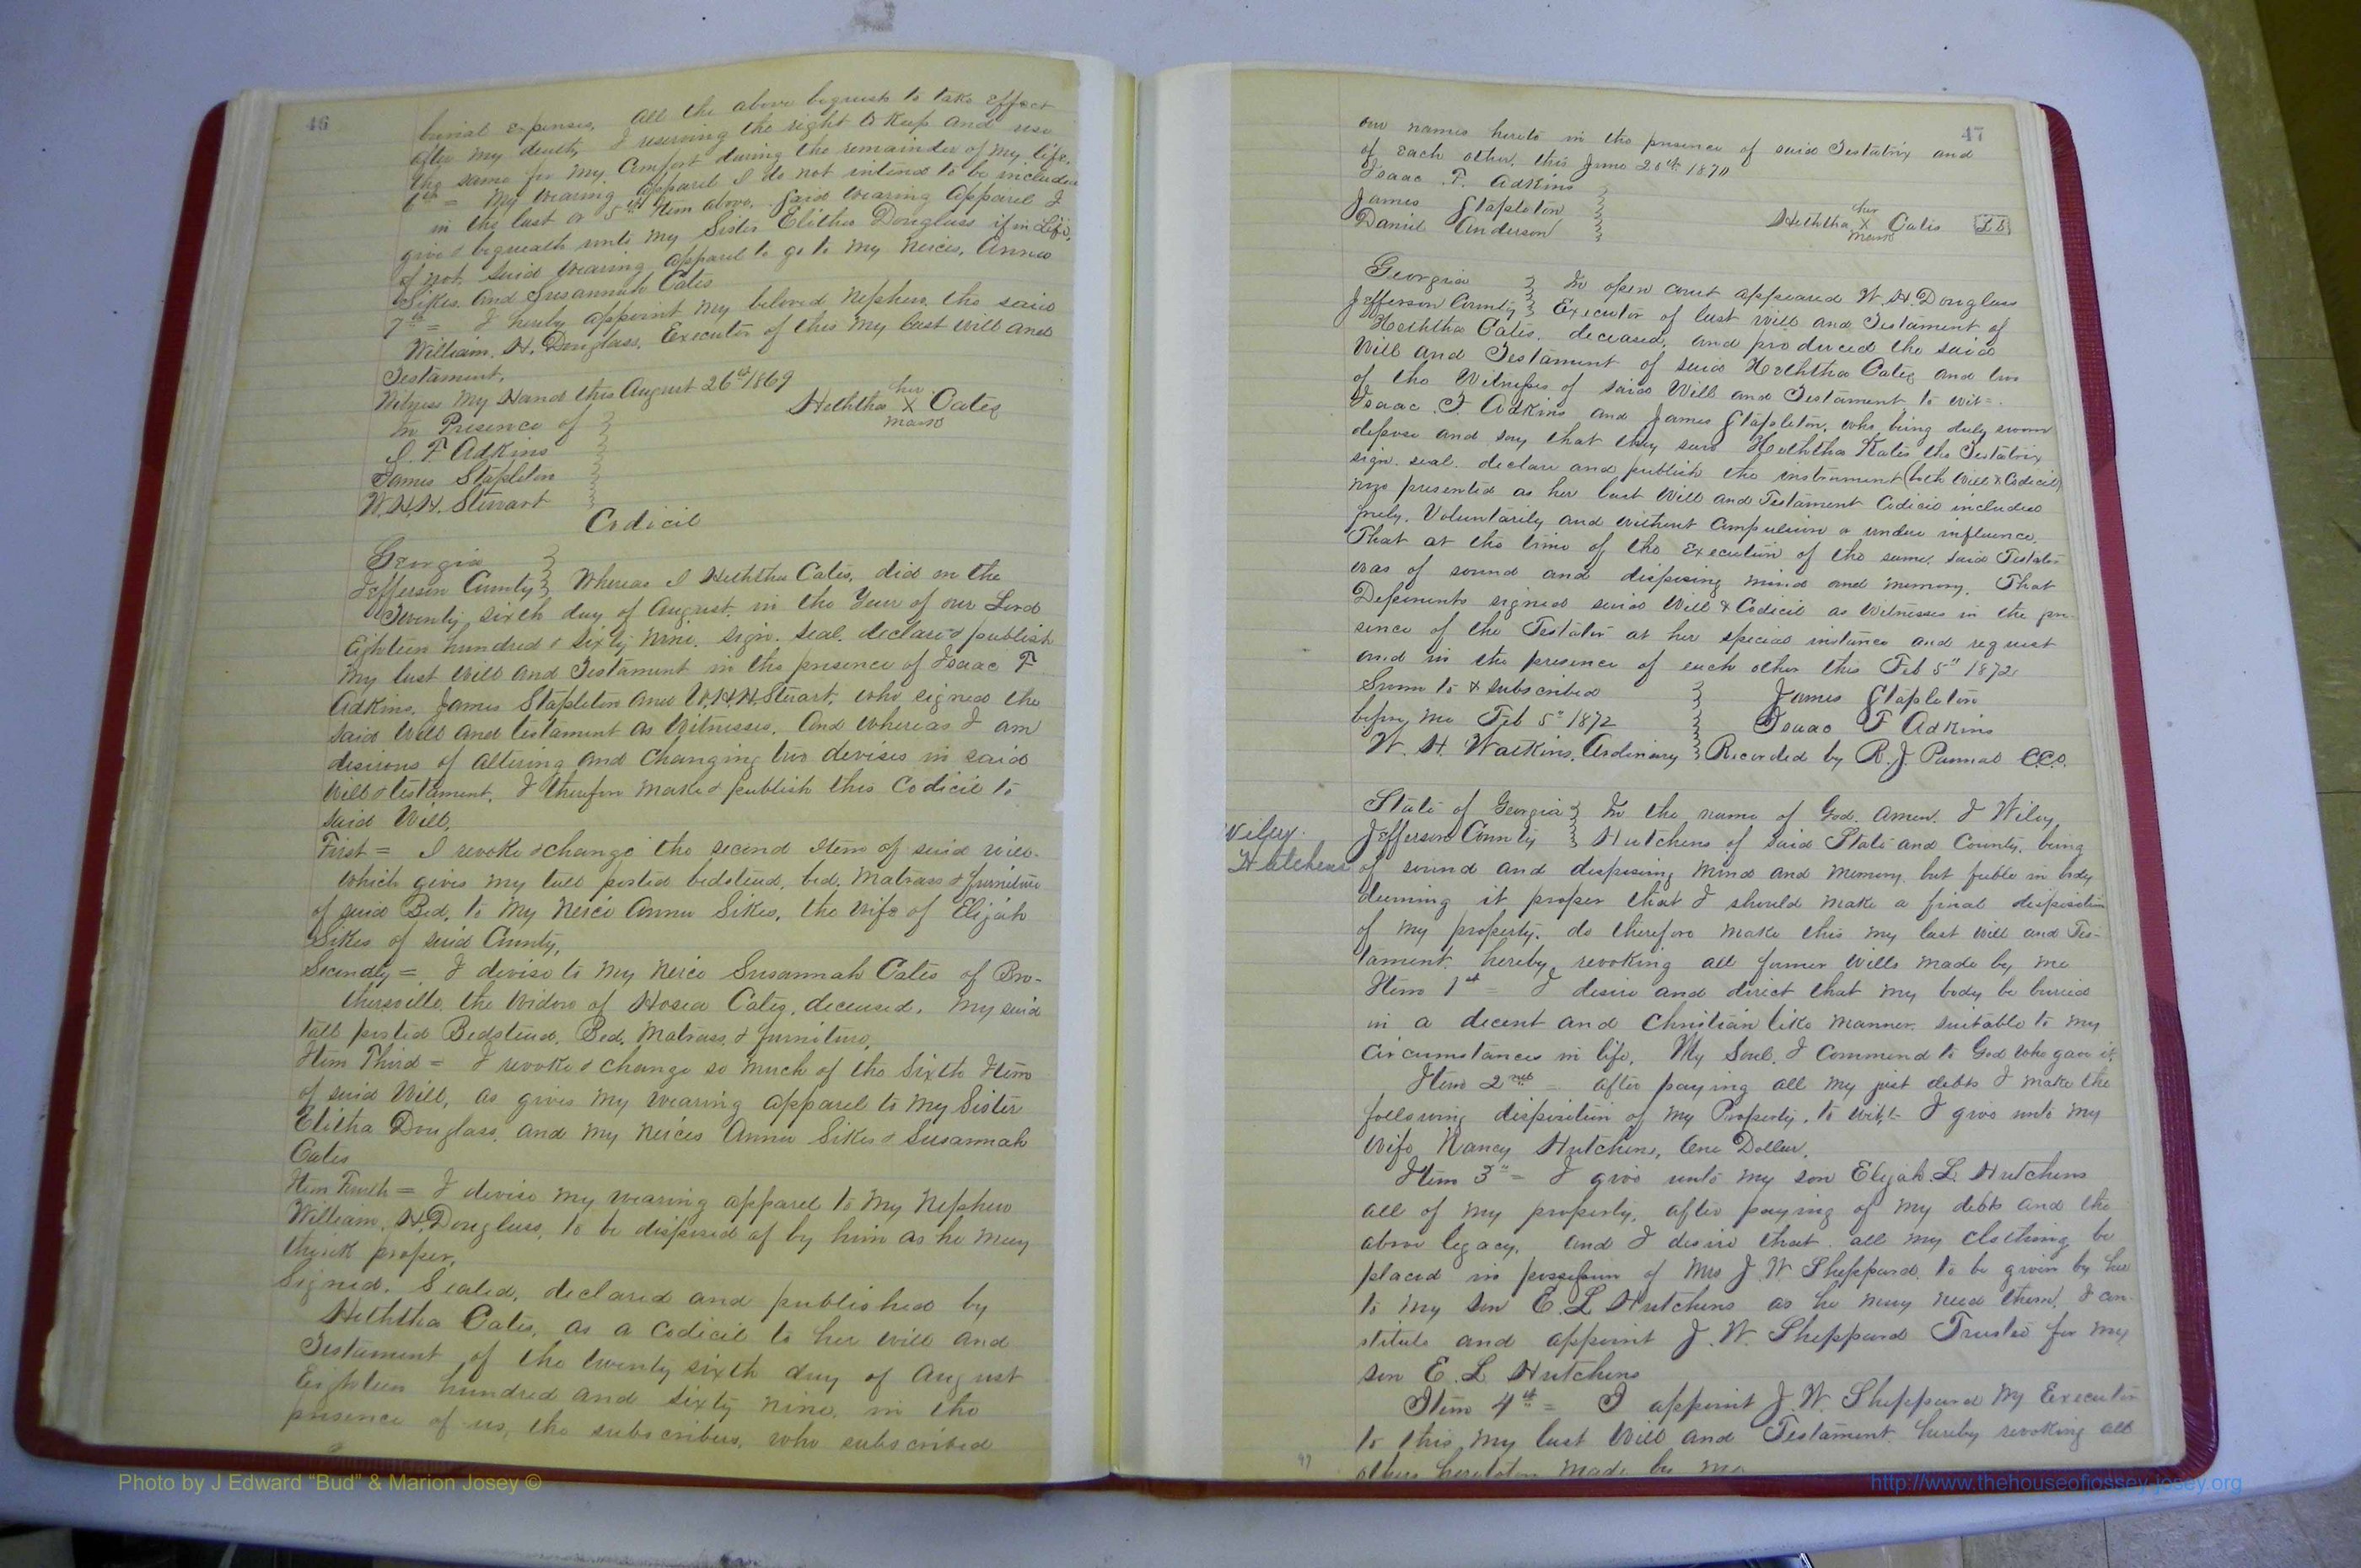 46
burial expenses. All the above bequests to take Effect
after my death, I reserving the right to Keep and use
the same for my Comfort during the remainder of my life.
6th = My wearing apparel I do not intend to be included
in the last or 5th Item above. Said wearing apparel I
give & bequeath unto my Sister Elitha Douglass if in Life,
if not, said wearing apparel to go to my Neices, Anna
Sikes. and Susannah Cates
7th = I hereby appoint my beloved Nephew, the said
William. H. Douglass. Executor of this my last will and
Testament.
Witness my Hand this August 26th 1869
her
Heththa X Cates
mark
In Presence of
I. F Adkins
James Stapleton
W.H.H. Stewart
Codicil
Georgia
Jefferson County Whereas I Heththa Cates, did on the
Twenty sixth day of August. in the Year of our Lord
Eighteen hundred & sixty nine. sign. seal. declare & publish
my last will and Testament in the presence of Isaac F
Adkins, James Stapleton and W.H.H. Stewart, who signed the
said Will and testament as Witnesses. And whereas I am
desirous of altering and changing two devises in said
Will & testament. I therefore make & publish this Codicil to
said Will.
First = I revoke & change the second Item of said will.
which gives my tall posted bedstead, bed, Matrass & furniture
of said Bed, to my Neice Anna Sikes, the wife of Elijah
Sikes of said County.
Secondly = I devise to my neice Susannah Cates of Bro-
thersville the Widow of Hosea Cates, deceased. my said
tall posted Bedstead, Bed, Matrass, & furniture.
Item Third = I revoke & change so much of the Sixth Item
of said Will, as gives my wearing apparel to my Sister
Elitha Douglass, and my neices Anna Sikes & Susannah
Cates
Item Fourth = I devise my wearing apparel to my Nephew
William. H. Douglass, to be disposed of by him as he may
think proper.
Signed. Sealed, declared and published by
Heththa Cates, as a Codicil to her will and
Testament of the twenty sixth day of August
Eighteen hundred and sixty nine. in the
presence of us, the subscribers, who subscribed
47
our names hereto in the presence of said Testatrix and
of each other, this June 20th 1870
Isaac. F. Adkins
James Stapleton
Daniel Anderson
her
Heththa X Cates LS
mark
Georgia In open court appeared W. H. Douglass
Jefferson County Executor of last will and Testament of
Heththa Cates, deceased, and produced the said
Will and Testament of said Heththa Cates and two
of the Witnesses of said Will and Testament to wit=.
Isaac. F. Adkins and James Stapleton, who being duly sworn
depose and say that they saw Heththa Kates the Testatrix
sign. seal. declare and publish the instrument (both Will & Codicil)
now presented as her last Will and Testament Codicil included
freely. Voluntarily and without Compulsion or undue influence.
That at the time of the execution of the same, said Testator
was of sound and disposing mind and memory. That
Deponents signed said Will & Codicil as Witnesses in the pre-
sence of the Testator at her special instance and request
and in the presence of each other this Feb 5" 1872
Sworn to & subscribed James Stapleton
before me Feb 5" 1872 Isaac F Adkins
W. H. Watkins, Ordinary Recorded by R. J. Pannal C.C.O.
Wiley
Hutchens
State of Georgia In the name of God. Amen. I Wiley
Jefferson County Hutchens of said State and County, being
of sound and disposing mind and memory, but feeble in body
deeming it proper that I should make a final disposition
of my property, do therefore make this my last will and Tes-
tament, hereby revoking all former wills made by me
Item 1st = I desire and direct that my body be buried
in a decent and Christian like manner, suitable to my
circumstances in life. My Soul. I commend to God who gave it
Item 2nd = after paying all my just debts I make the
following disposition of my Property, to wit,= I give unto my
Wife Nancy Hutchens, One Dollar.
Item 3" = I give unto my son Elijah. L. Hutchens
all of my property, after paying of my debts and the
above legacy. and I desire that all my clothing be
placed in possession of Mrs J. W Sheppard. to be given by her
to my son E. L Hutchens as he may need them. I con-
stitute and appoint J. W. Sheppard Trustee for my
son E. L Hutchens
Item 4th = I appoint J. W. Sheppard my Executor
to this my last Will and Testament hereby revoking all
others heretofore made by me
47
Photo by J Edward “Bud” & Marion Josey ©
http://www.thehouseofjossey-josey.org